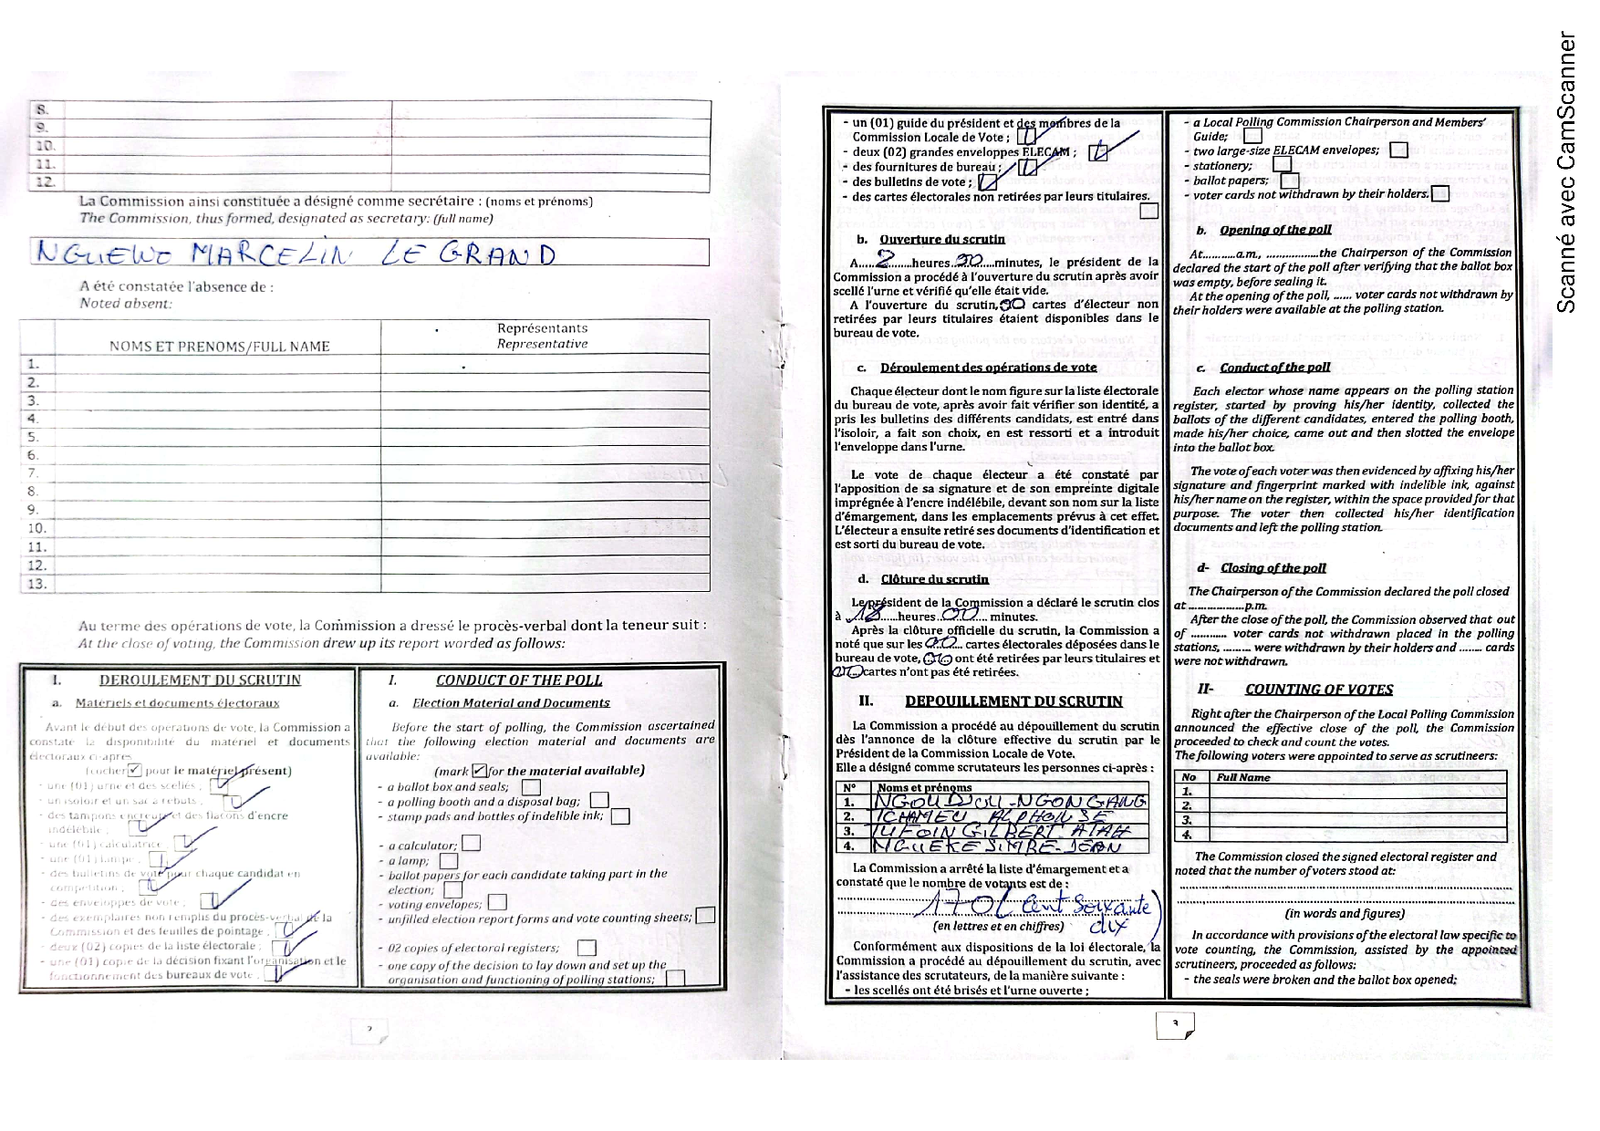 8.
9.
10.
11.
12.
La Commission ainsi constituée a désigné comme secrétaire : (noms et prénoms)
The Commission, thus formed, designated as secretary: (full name)
NGUEWO MARCELIN LE GRAND
A été constatée l'absence de :
Noted absent:
NOMS ET PRENOMS/FULL NAME
Représentants
Representative
1.
2.
3.
4.
5.
6.
7.
8.
9.
10.
11.
12.
13.
Au terme des opérations de vote, la Commission a dressé le procès-verbal dont la teneur suit :
At the close of voting, the Commission drew up its report worded as follows:
I. DEROULEMENT DU SCRUTIN
a. Matériels et documents électoraux
Avant le début des opérations de vote, la Commission a
constaté la disponibilité du matériel et documents
électoraux ci-après
(cocher pour le matériel présent)
- une (01) urne et des scellés ;
- un isoloir et un sac à rebuts ;
- des tampons encreurs et des flacons d'encre
indélébile ;
- une (01) calculatrice ;
- une (01) lampe ;
- des bulletins de vote pour chaque candidat en
compétition ;
- des enveloppes de vote ;
- des exemplaires non remplis du procès-verbal de la
Commission et des feuilles de pointage ;
- deux (02) copies de la liste électorale ;
- une (01) copie de la décision fixant l'organisation et le
fonctionnement des bureaux de vote ;
I. CONDUCT OF THE POLL
a. Election Material and Documents
Before the start of polling, the Commission ascertained
that the following election material and documents are
available:
(mark for the material available)
- a ballot box and seals;
- a polling booth and a disposal bag;
- stamp pads and bottles of indelible ink;
- a calculator;
- a lamp;
- ballot papers for each candidate taking part in the
election;
- voting envelopes;
- unfilled election report forms and vote counting sheets;
- 02 copies of electoral registers;
- one copy of the decision to lay down and set up the
organisation and functioning of polling stations;
2
- un (01) guide du président et des membres de la
Commission Locale de Vote ;
- deux (02) grandes enveloppes ELECAM ;
- des fournitures de bureau ;
- des bulletins de vote ;
- des cartes électorales non retirées par leurs titulaires.
b. Ouverture du scrutin
A.....heures.....minutes, le président de la
Commission a procédé à l'ouverture du scrutin après avoir
scellé l'urne et vérifié qu'elle était vide.
A l'ouverture du scrutin, cartes d'électeur non
retirées par leurs titulaires étaient disponibles dans le
bureau de vote.
c. Déroulement des opérations de vote
Chaque électeur dont le nom figure sur la liste électorale
du bureau de vote, après avoir fait vérifier son identité, a
pris les bulletins des différents candidats, est entré dans
l'isoloir, a fait son choix, en est ressorti et a introduit
l'enveloppe dans l'urne.
Le vote de chaque électeur a été constaté par
l'apposition de sa signature et de son empreinte digitale
imprégnée à l'encre indélébile, devant son nom sur la liste
d'émargement, dans les emplacements prévus à cet effet.
L'électeur a ensuite retiré ses documents d'identification et
est sorti du bureau de vote.
d. Clôture du scrutin
Le président de la Commission a déclaré le scrutin clos
à 18 heures 00 minutes.
Après la clôture officielle du scrutin, la Commission a
noté que sur les 00 cartes électorales déposées dans le
bureau de vote, 00 ont été retirées par leurs titulaires et
00 cartes n'ont pas été retirées.
II. DEPOUILLEMENT DU SCRUTIN
La Commission a procédé au dépouillement du scrutin
dès l'annonce de la clôture effective du scrutin par le
Président de la Commission Locale de Vote.
Elle a désigné comme scrutateurs les personnes ci-après :
N° Noms et prénoms
1. NGOUDJOU-NGONGANG
2. TCHAMEU ALPHONSE
3. GILBERT ATAH
4. NGUEKE JEAN
La Commission a arrêté la liste d'émargement et a
constaté que le nombre de votants est de :
170 ( Cent soixante
dix )
(en lettres et en chiffres)
Conformément aux dispositions de la loi électorale, la
Commission a procédé au dépouillement du scrutin, avec
l'assistance des scrutateurs, de la manière suivante :
- les scellés ont été brisés et l'urne ouverte ;
- a Local Polling Commission Chairperson and Members'
Guide;
- two large-size ELECAM envelopes;
- stationery;
- ballot papers;
- voter cards not withdrawn by their holders.
b. Opening of the poll
At..........a.m, ...............the Chairperson of the Commission
declared the start of the poll after verifying that the ballot box
was empty, before sealing it.
At the opening of the poll, ...... voter cards not withdrawn by
their holders were available at the polling station.
c. Conduct of the poll
Each elector whose name appears on the polling station
register, started by proving his/her identity, collected the
ballots of the different candidates, entered the polling booth,
made his/her choice, came out and then slotted the envelope
into the ballot box.
The vote of each voter was then evidenced by affixing his/her
signature and fingerprint marked with indelible ink, against
his/her name on the register, within the space provided for that
purpose. The voter then collected his/her identification
documents and left the polling station.
d- Closing of the poll
The Chairperson of the Commission declared the poll closed
at ..................p.m.
After the close of the poll, the Commission observed that out
of ........... voter cards not withdrawn placed in the polling
stations, ......... were withdrawn by their holders and ....... cards
were not withdrawn.
II- COUNTING OF VOTES
Right after the Chairperson of the Local Polling Commission
announced the effective close of the poll, the Commission
proceeded to check and count the votes.
The following voters were appointed to serve as scrutineers:
No Full Name
1.
2.
3.
4.
The Commission closed the signed electoral register and
noted that the number of voters stood at:
(in words and figures)
In accordance with provisions of the electoral law specific to
vote counting, the Commission, assisted by the appointed
scrutineers, proceeded as follows:
- the seals were broken and the ballot box opened;
3
Scanné avec CamScanner